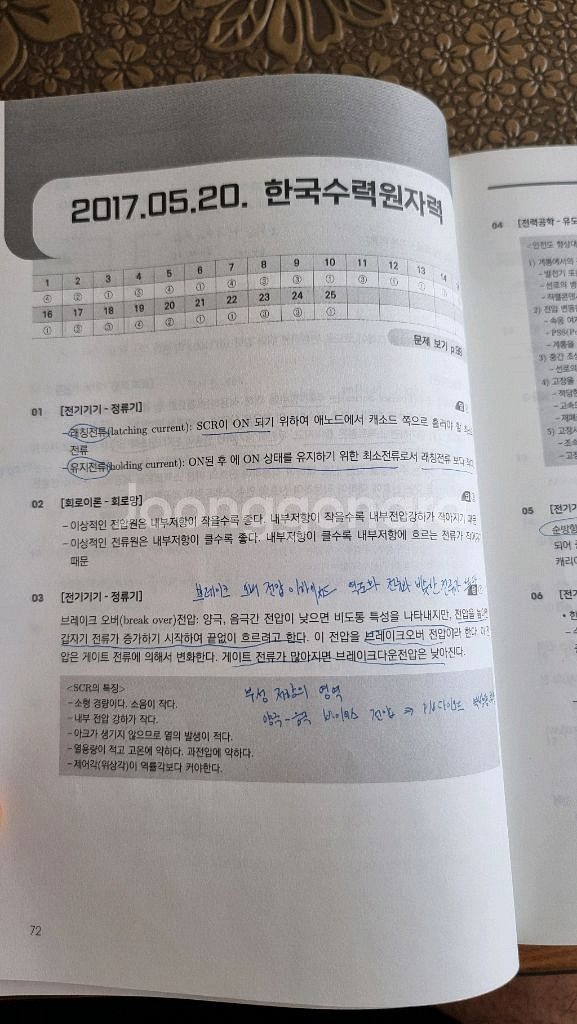 2017.05.20. 한국수력원자력
1 2 3 4 5 6 7 8 9 10 11 12 13 14
④ ② ① ⑤ ④ ① ④ ③ ③ ① ③ ① ① ①
16 17 18 19 20 21 22 23 24 25
① ③ ③ ④ ② ① ① ③ ③ ①
문제 보기 p.
01 [전기기기 - 정류기]
- 래칭전류(latching current): SCR이 ON 되기 위하여 애노드에서 캐소드 쪽으로 흘러야 할 최소
전류
- 유지전류(holding current): ON된 후 에 ON 상태를 유지하기 위한 최소전류로서 래칭전류 보다
02 [회로이론 - 회로망]
- 이상적인 전압원은 내부저항이 작을수록 좋다. 내부저항이 작을수록 내부전압강하가 작아지기 때문
- 이상적인 전류원은 내부저항이 클수록 좋다. 내부저항이 클수록 내부저항에 흐르는 전류가 작아지기
때문
브레이크 오버 전압 이하에서
03 [전기기기 - 정류기]
브레이크 오버(break over)전압: 양극, 음극간 전압이 낮으면 비도통 특성을 나타내지만, 전압을 높이면
갑자기 전류가 증가하기 시작하여 끝없이 흐르려고 한다. 이 전압을 브레이크오버 전압이라 한다.
압은 게이트 전류에 의해서 변화한다. 게이트 전류가 많아지면 브레이크다운전압은 낮아진다.
<SCR의 특징>
- 소형 경량이다. 소음이 작다.
- 내부 전압 강하가 작다.
- 아크가 생기지 않으므로 열의 발생이 적다.
- 열용량이 적고 고온에 약하다. 과전압에 약하다.
- 제어각(위상각)이 역률각보다 커야한다.
부성 저항의 영역
양극-음극 바이어스 전압 ⇒
72
04 [전력공학 - 유도
<안전도 향상대
1) 계통에서의
- 발전기 또
- 선로의 병
- 직렬콘덴
2) 전압 변동
- 속응 여자
- PSS(Po
- 계통을
3) 중간 조상
- 선로의
4) 고장을
- 적당한
- 고속도
- 재폐
5) 고장시
- 조속
- 고장
05 [전기기
순방향
되어
캐리
06 [전기
loonggom